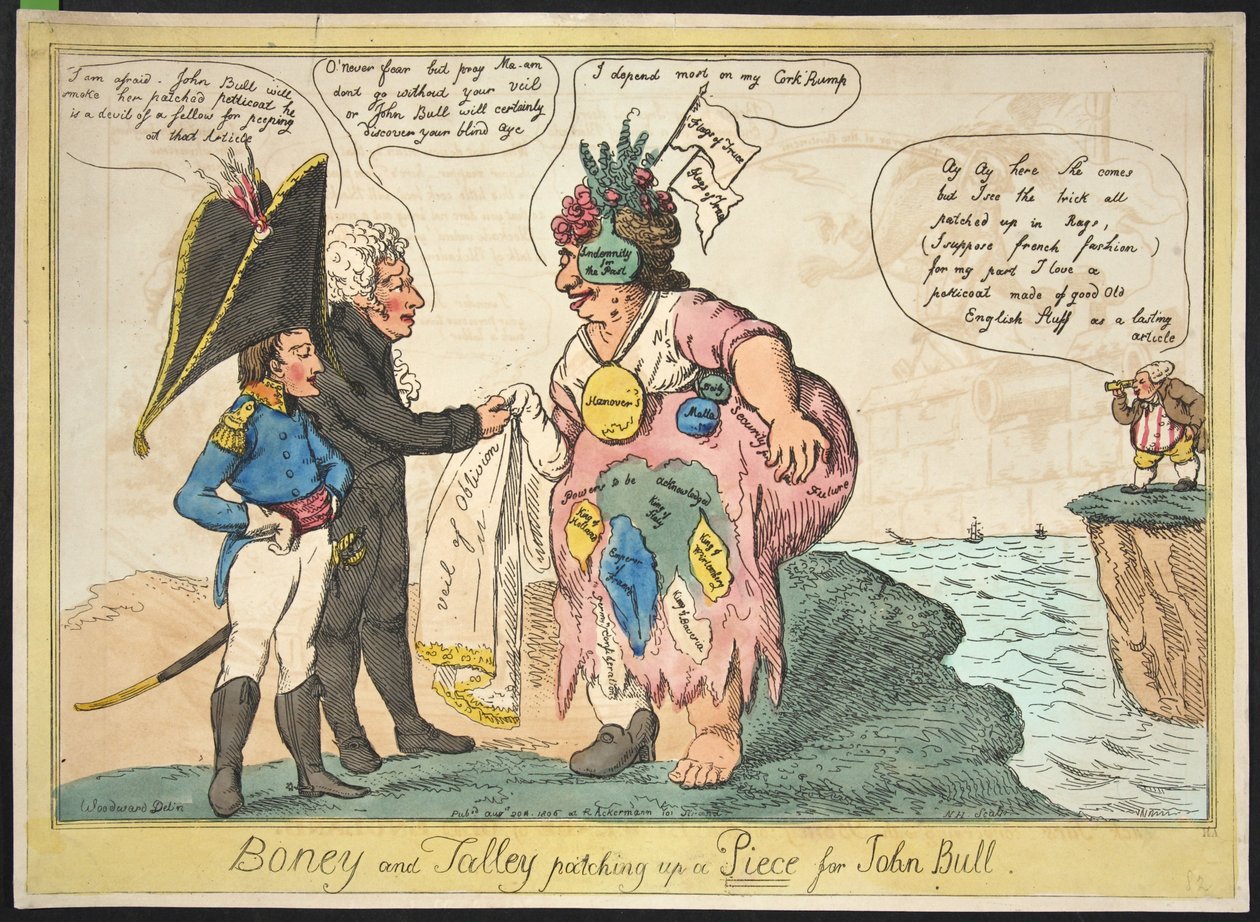 I am afraid - John Bull will
smoke her patched petticoat he
is a devil of a fellow for peeping
at that Article
O! never fear but pray Ma-am
dont go without your veil
or John Bull will certainly
discover your blind Aye
I depend most on my Cork Rump
Flags of Truce
Flags of Truce
Ay Ay here She comes
but I see the trick all
patched up in Rags,
(I suppose french fashion)
for my part I love a
petticoat made of good Old
English Stuff as a lasting
article
Indemnity
for
the Past
Hanover
Sicily
Malta
Security
Future
veil of Oblivion
Powers to be acknowledged
King of
Holland
King of
Italy
Emperor
of
France
King of
Wirtemberg
King of Bavaria
Woodward Del'n
Pub'd Aug 20th 1806 at R Ackermann 101 Strand
Boney and Talley patching up a Piece for John Bull.